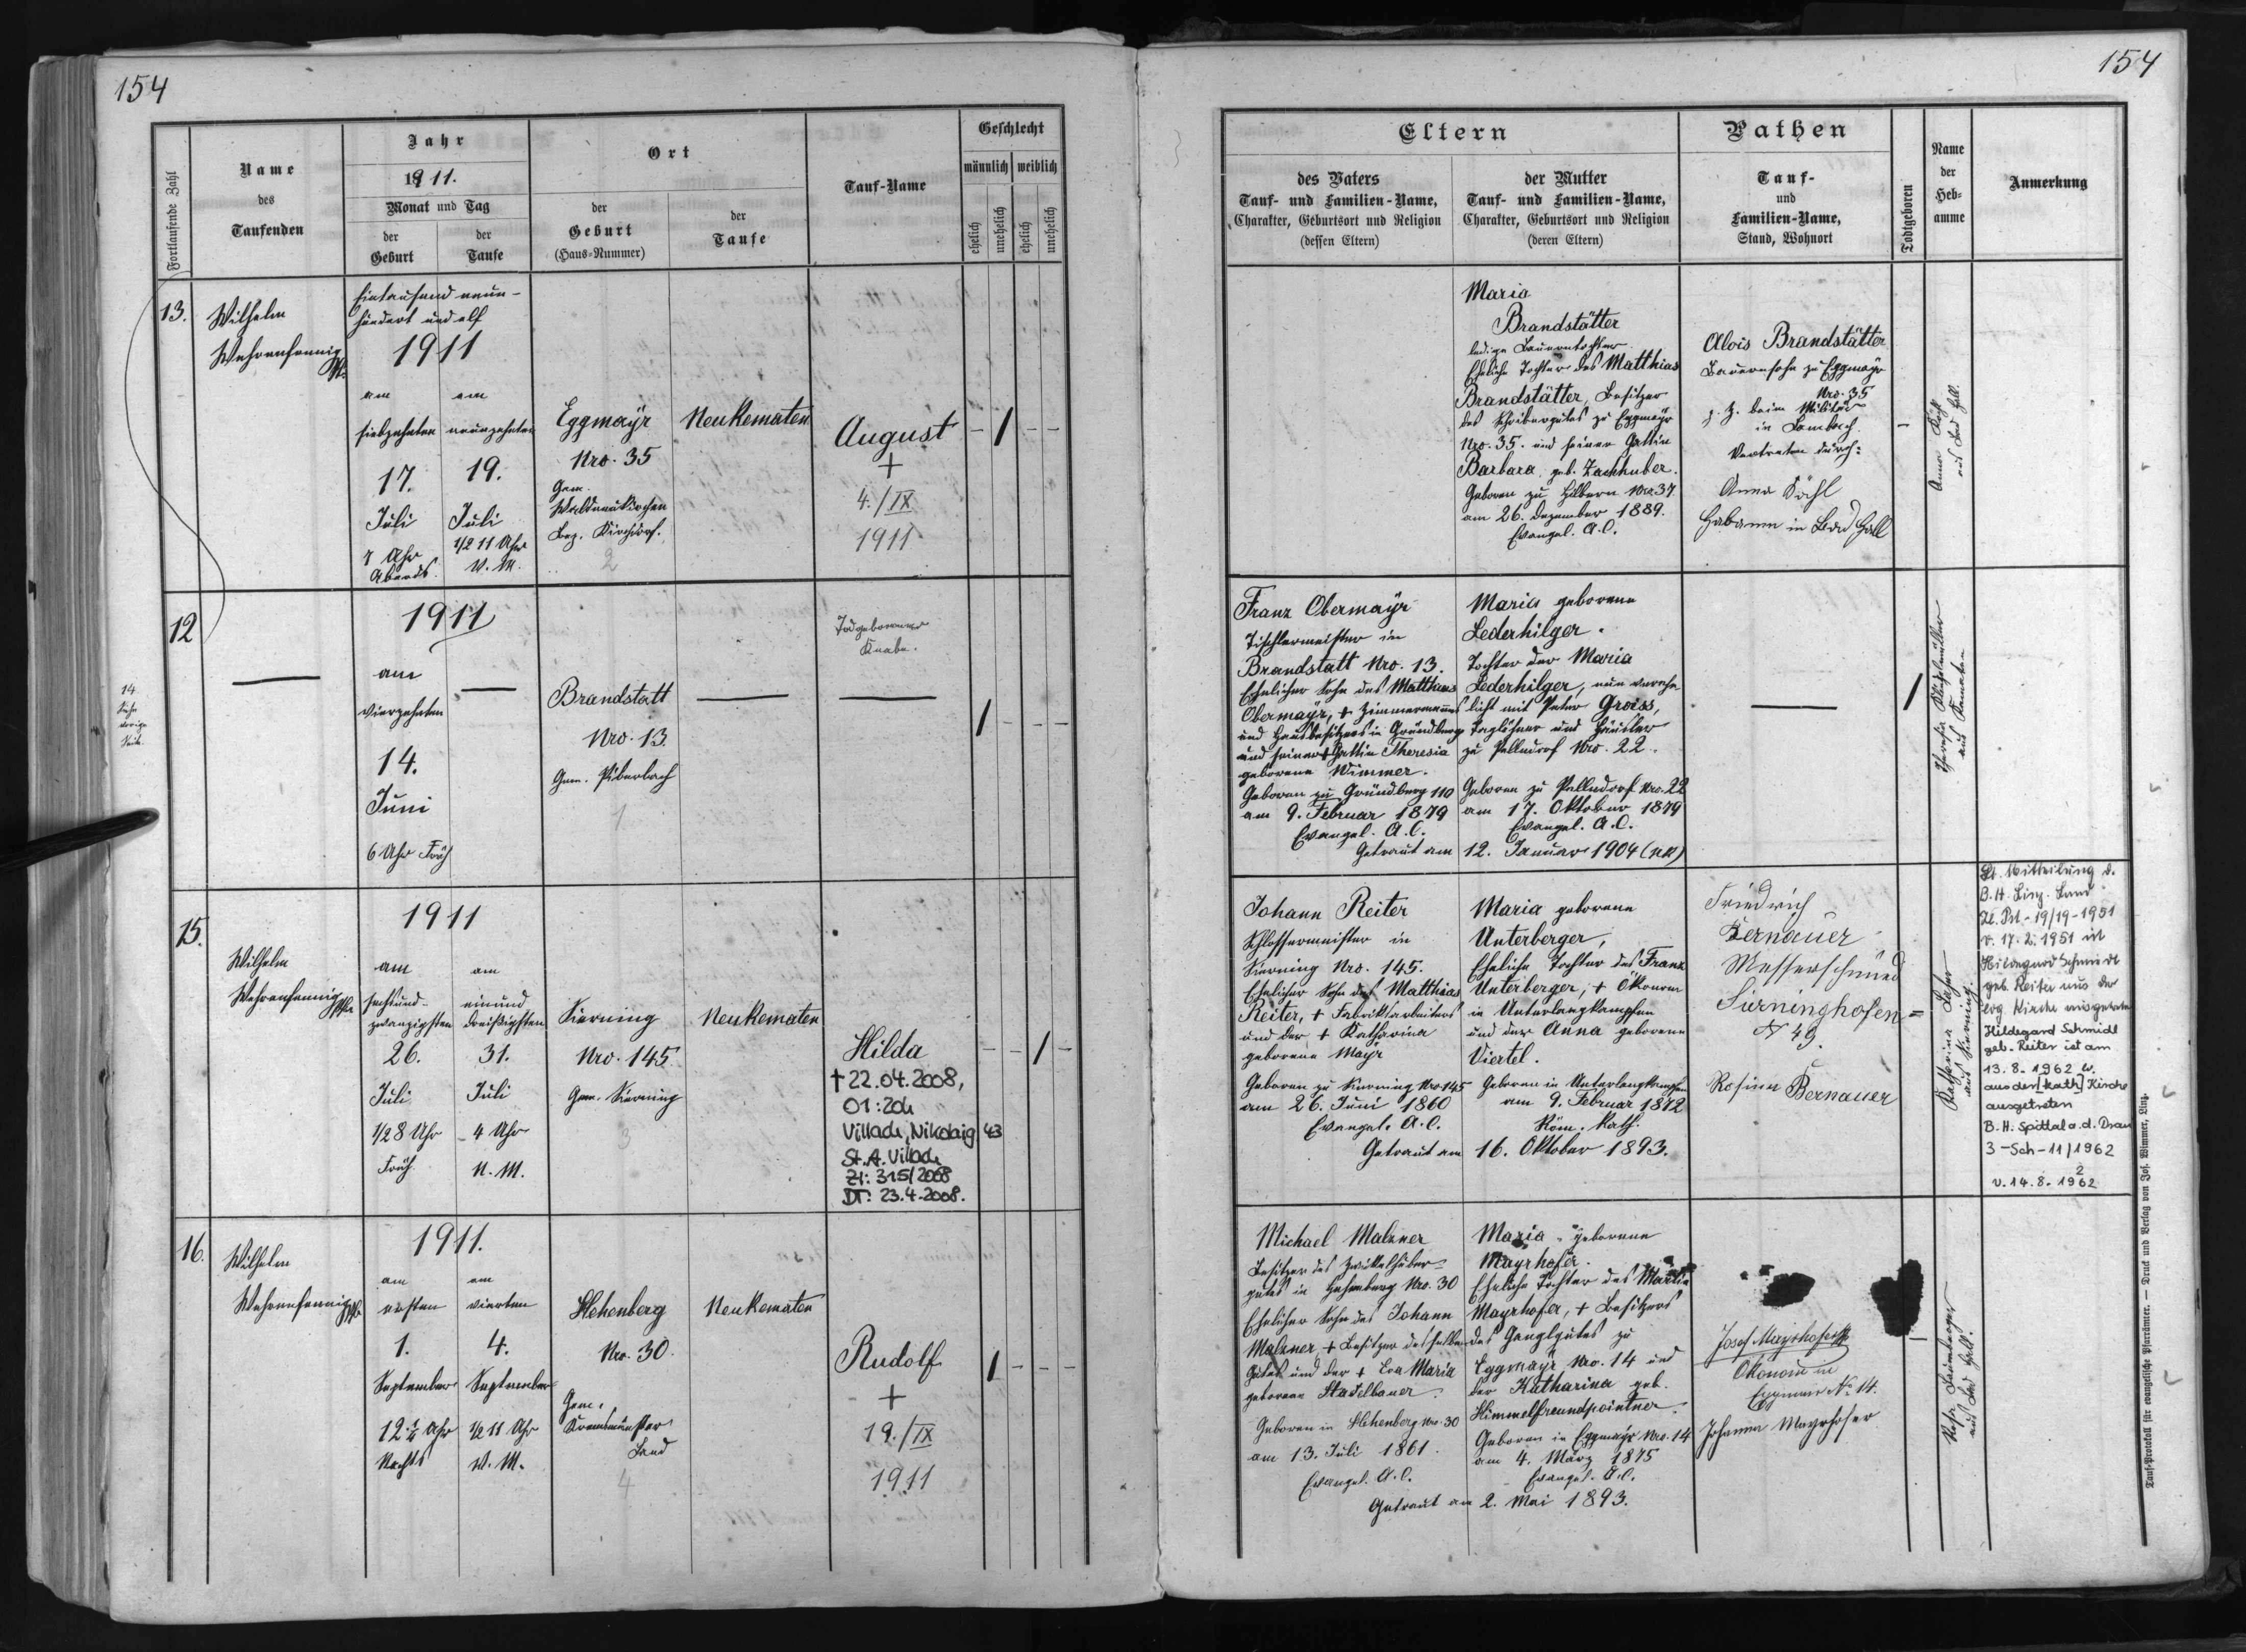 154
Fortlaufende Zahl
Name
des
Taufenden
Jahr
1911.
Monat und Tag
der
Geburt
der
Taufe
Ort
der
Geburt
(Haus-Nummer)
der
Taufe
Tauf-Name
Geschlecht
männlich
weiblich
ehelich
unehelich
ehelich
unehelich
13.
Wilhelm
Wehrenfennig
Eintausend neun-
hundert und elf
1911
am
siebzehnten
17.
Juli
Uhr
Abends.
am
neunzehnten
19.
Juli
1/2 11 Uhr
V. M.
Eggmayr
Nro. 35
Gem.
Waldneukirchen
Bez. Kirchdorf.
2
Neukematen
August
+
4./IX
1911
12
14
Siehe
vorige
Seite.
1911
am
vierzehnten
14.
Juni
6 Uhr Früh
Brandstatt
Nro. 13.
Gem. Piberbach
1
Todgeborener
Knabe.
15.
Wilhelm
Wehrenfennig
1911
am
sechsund-
zwanzigsten
26.
Juli
1/2 8 Uhr
Früh
am
einund
dreißigsten
31.
Juli
4 Uhr
N. M.
Sierning
Nro. 145
Gem. Sierning
3
Neukematen
Hilda
† 22.04.2008,
01:20h
Villach, Nikolaig 43
St. A. Villach
Zl: 315/2008
DT: 23.4.2008.
16.
Wilhelm
Wehrenfennig
1911.
am
ersten
1.
September
12 1/4 Uhr
Nachts
am
vierten
4.
September
1/2 11 Uhr
V. M.
Hehenberg
Nro. 30.
Gem.
Kremsmünster
Land
4
Neukematen
Rudolf
+
19./IX
1911
154
Eltern
des Vaters
Tauf- und Familien-Name,
Charakter, Geburtsort und Religion
(dessen Eltern)
der Mutter
Tauf- und Familien-Name,
Charakter, Geburtsort und Religion
(deren Eltern)
Pathen
Tauf-
und
Familien-Name,
Stand, Wohnort
Todtgeboren
Name
der
Heb-
amme
Anmerkung
Maria
Brandstätter
ledige Bauerntochter
Eheliche Tochter des Matthias
Brandstätter, Besitzer
des Schreibergutes zu Eggmayr
Nro. 35. und seiner Gattin
Barbara, geb. Zachhuber.
Geboren zu Hilbern Nro 37.
am 26. Dezember 1889.
Evangel. A. C.
Alois Brandstätter
Bauernsohn zu Eggmayr
Nro. 35
z. Z. beim Militär
in Lambach.
Vertreten durch:
Anna
Hebamme in Bad Hall
Anna
aus Bad Hall.
Franz Obermayr
Tischlermeister in
Brandstatt Nro. 13.
Ehelicher Sohn des Matthäus
Obermayr, + Zimmermannes
und Hausbesitzers in Gründberg
und seiner + Gattin Theresia
geborene Wimmer.
Geboren zu Gründberg 110
am 9. Februar 1879
Evangel. A. C.
Maria geborene
Lederhilger.
Tochter der Maria
Lederhilger, nun verehe-
licht mit Peter Groiss,
Taglöhner und Häusler
zu Pellndorf Nro. 22.
Geboren zu Pellndorf Nro. 22
am 17. Oktober 1879
Evangel. A. C.
Getraut am 12. Januar 1904 (NK)
aus Kematen
Johann Reiter
Schlossermeister in
Sierning Nro. 145.
Ehelicher Sohn des Matthias
Reiter, + Fabriksarbeiters
und der + Katharina
geborene Mayr
Geboren zu Sierning Nro 145
am 26. Juni 1860
Evangel. A. C.
Maria geborene
Unterberger,
Eheliche Tochter des Franz
Unterberger, + Ökonom
in Unterlangkampfen
und der Anna geborene
Viertel.
Geboren in Unterlangkampfen
am 9. Februar 1872
Röm. Kath.
Getraut am 16. Oktober 1893.
Friedrich
Bernauer
Messerschmied
Sierninghofen
N 49.
Rosina Bernauer
Katharina
aus Sierning.
Lt. Mitteilung d.
B. H. Linz-Land
Zl. Pol-19/19-1951
v. 17.2.1951 ist
Hildegard Schmidl
geb. Reiter aus der
evg Kirche ausgetreten
Hildegard Schmidl
geb. Reiter ist am
13.8.1962 w.
aus der [kath] Kirche
ausgetreten
B. H. Spittal a. d. Drau
3-Sch-11/1962
2
v. 14.8.1962
Michael Malzner
Besitzer des Zwickelhuber-
gutes in Hehenberg Nro. 30
Ehelicher Sohn des Johann
Malzner, + Besitzer desselben
Gutes und der + Eva Maria
geborene Stadelbauer.
Geboren in Hehenberg Nro. 30
am 13. Juli 1861.
Evangel. A. C.
Maria geborene
Mayrhofer.
Eheliche Tochter des Martin
Mayrhofer, + Besitzers
des Ganglgutes zu
Eggmayr Nro. 14 und
der Katharina geb.
Himmelfreundpointner.
Geboren in Eggmayr Nro. 14
am 4. März 1875
Evangel. A. C.
Getraut am 2. Mai 1893.
Josef Mayrhofer
Ökonom in
Eggmair No 14.
Johanna Mayrhofer
aus Bad Hall.
Tauf-Protokoll für evangelische Pfarrämter. — Druck und Verlag von Jos. Wimmer, Linz.